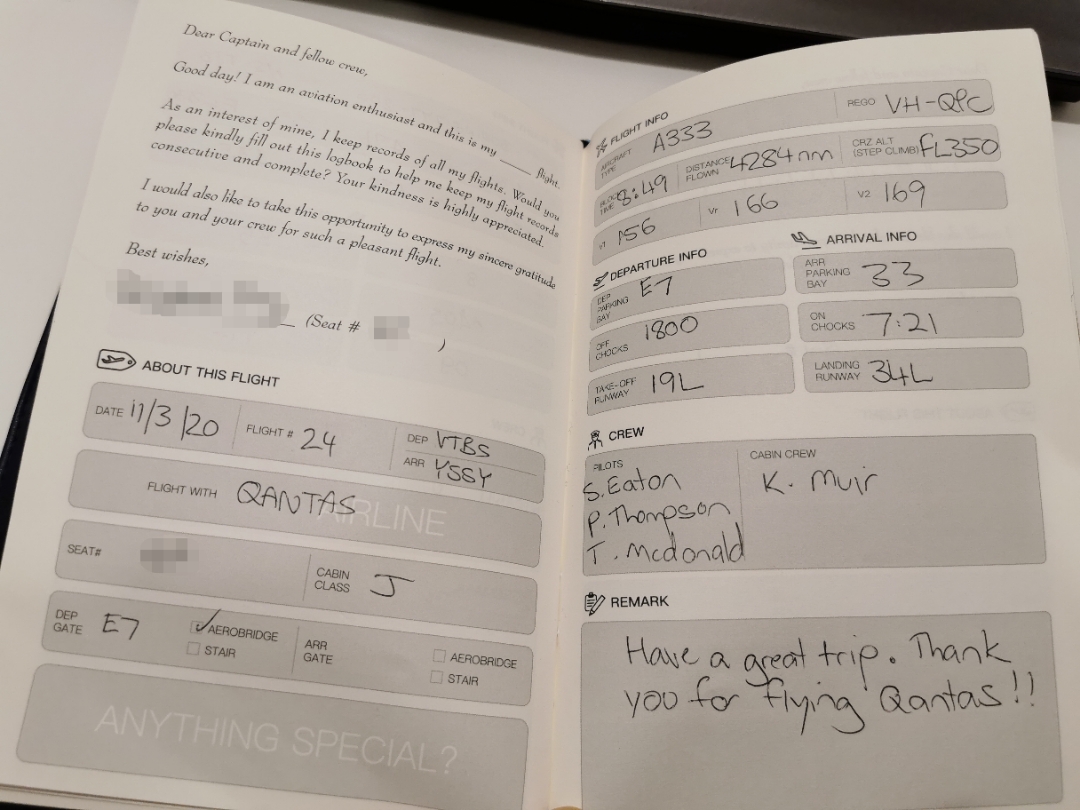 Dear Captain and fellow crew,
Good day! I am an aviation enthusiast and this is my _____ flight.
As an interest of mine, I keep records of all my flights. Would you
please kindly fill out this logbook to help me keep my flight records
consecutive and complete? Your kindness is highly appreciated.
I would also like to take this opportunity to express my sincere gratitude
to you and your crew for such a pleasant flight.
Best wishes,
(Seat # )
ABOUT THIS FLIGHT
DATE 17/3/20 FLIGHT # 24 DEP VTBS
ARR YSSY
FLIGHT WITH QANTAS AIRLINE
SEAT# CABIN CLASS J
DEP GATE E7 AEROBRIDGE ARR GATE AEROBRIDGE
STAIR STAIR
ANYTHING SPECIAL?
FLIGHT INFO
AIRCRAFT TYPE A333 REGO VH-QPC
BLOCK TIME 8:49 DISTANCE FLOWN 4284nm CRZ ALT (STEP CLIMB) FL350
V1 156 Vr 166 V2 169
DEPARTURE INFO
DEP PARKING BAY E7
OFF CHOCKS 1800
TAKE-OFF RUNWAY 19L
ARRIVAL INFO
ARR PARKING BAY 33
ON CHOCKS 7:21
LANDING RUNWAY 34L
CREW
PILOTS
S. Eaton
P. Thompson
T. Mcdonald
CABIN CREW
K. Muir
REMARK
Have a great trip. Thank
you for flying Qantas!!